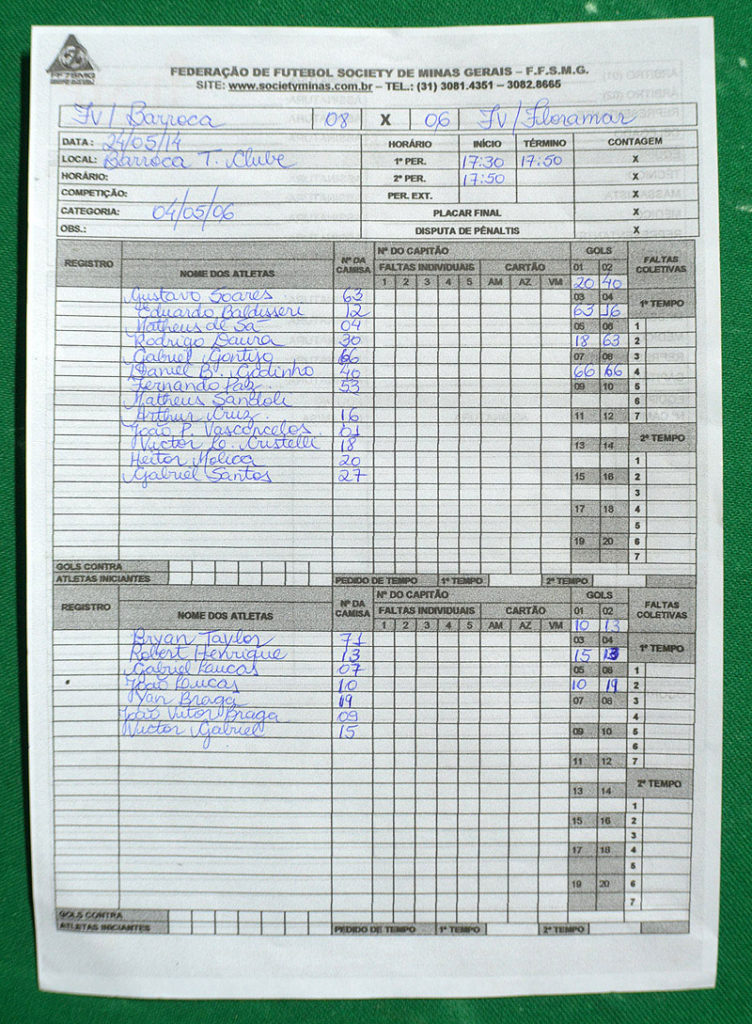 F.F.S.M.G
FEDERAÇÃO DE FUTEBOL SOCIETY DE MINAS GERAIS – F.F.S.M.G.
SITE: www.societyminas.com.br – TEL.: (31) 3081.4351 – 3082.8665
JV/Barroca 08 X 06 JV/Floramar
DATA: 24/05/14 HORÁRIO INÍCIO TÉRMINO CONTAGEM
LOCAL: Barroca T. Clube 1º PER. 17:30 17:50 X
HORÁRIO: 2º PER. 17:50 X
COMPETIÇÃO: PER. EXT. X
CATEGORIA: 04/05/06 PLACAR FINAL X
OBS.: DISPUTA DE PÊNALTIS X
REGISTRO NOME DOS ATLETAS Nº DA CAMISA Nº DO CAPITÃO GOLS FALTAS COLETIVAS
FALTAS INDIVIDUAIS CARTÃO 01 02
1 2 3 4 5 AM AZ VM 20 40
Gustavo Soares 63 03 04 1º TEMPO
Eduardo Baldisseri 12 63 16
Matheus de Sá 04 05 06 1
Rodrigo Daura 30 18 63 2
Gabriel Gontijo 66 07 08 3
Daniel B. Godinho 40 66 66 4
Fernando Paz 53 09 10 5
Matheus Sandoli 6
Arthur Cruz 16 11 12 7
João P. Vasconcelos 01 2º TEMPO
Victor L. Cristelli 18 13 14
Heitor Molica 20 1
Gabriel Santos 27 15 16 2
3
17 18 4
5
19 20 6
7
GOLS CONTRA
ATLETAS INICIANTES PEDIDO DE TEMPO 1º TEMPO 2º TEMPO
REGISTRO NOME DOS ATLETAS Nº DA CAMISA Nº DO CAPITÃO GOLS FALTAS COLETIVAS
FALTAS INDIVIDUAIS CARTÃO 01 02
1 2 3 4 5 AM AZ VM 10 13
Bryan Taylor 71 03 04 1º TEMPO
Robert Henrique 13 15 13
Gabriel Lucas 07 05 06 1
João Lucas 10 10 19 2
Yan Braga 19 07 08 3
João Vitor Braga 09 4
Victor Gabriel 15 09 10 5
6
11 12 7
2º TEMPO
13 14
1
15 16 2
3
17 18 4
5
19 20 6
7
GOLS CONTRA
ATLETAS INICIANTES PEDIDO DE TEMPO 1º TEMPO 2º TEMPO